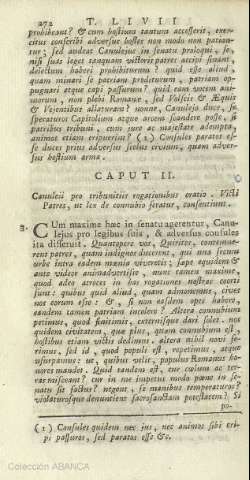 272 T. LIVII
prohibeant? & cum hostium tantum accesserit, exer-
citus conscribi adversus hostes no modo non patian-
tur; sed audeat Canulejus in senatu proloqui, se,
nisi suas leges tanquam victoris patres accipi sinant,
delectum haberi prohibiturum? quid esse aliud,
quam minari se patriam proditurum, patriam op-
pugnari atque capi passurum? quid eam vocem ani-
morum, non plebi Romanæ, sed Volscis & Æquis
& Vejentibus allaturam? nonne, Canulejo duce, se
speraturos Capitolium atque arcem scandere posse, si
patribus tribuni, cum jure ac majestate adempta,
animos etiam eripuerint? (1) Consules paratos es-
se duces prius adversus scelus civium, quam adver-
sus hostium arma.
CAPUT II.
Canuleii pro tribunitiis rogationibus oratio. Victi
Patres, ut lex de connubio feratur, consentiunt.
3. CUm maxime hæc in senatu agerentur, Canu-
lejus pro legibus suis, & adversus consules
ita disseruit. Quantopere vos, Quirites, contemne-
rent patres, quam indignos ducerent, qui una secum
urbe intra eadem mœnia viveretis; sæpe equidem &
ante videor animadvertisse, nunc tamen maxime,
quod adeo atroces in has rogationes nostras coorti
sunt: quibus quid aliud, quam admonemus, cives
nos eorum esse: & si non easdem opes habere,
eandem tamen patriam incolere? Altera connubium
petimus, quod finitimis, externisque dari solet. nos
quidem civitatem, quæ plus, quam connubium est,
hostibus etiam victis dedimus. altera nihil novi fe-
rimus, sed id, quod populi est, repetimus, atque
usurpamus: ut, quibus velit, populus Romanus ho-
nores mandet. Quid tandem est, cur cœlum ac ter-
ras misceant? cur in me impetus modo pæne in se-
natu sit factus? negent, se manibus temperaturos?
violaturosque denuntient sacrosanctam potestatem? Si
po-
(1) Consules quidem nec jus, nec animos sibi eri-
pi passuros, sed paratos esse &c.
Colección ABANCA